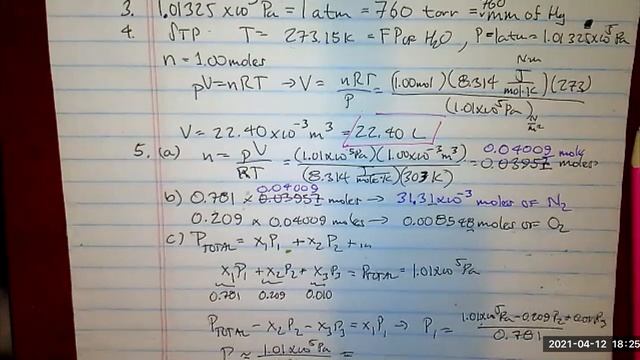 3. 1.01325 x10⁵ Pa = 1 atm = 760 torr = 760 mm of Hg
4. STP T = 273.15K = FP of H₂O, P = 1atm = 1.01325x10⁵ Pa
n = 1.00 moles
pV = nRT → V = nRT/P = (1.00 mol)(8.314 J/mol·K)(273)/(1.01x10⁵ Pa) Nm N/m²
V = 22.40 x10⁻³ m³ = 22.40 L
5. (a) n = pV/RT = (1.01x10⁵ Pa)(1.00x10⁻³ m³)/(8.314 J/mole·K)(303 K) = 0.03957 moles 0.04009 moles
b) 0.781 x 0.03957 0.04009 moles → 31.31 x10⁻³ moles of N₂
0.209 x 0.04009 moles → 0.008548 moles of O₂
c) P_TOTAL = x₁P₁ + x₂P₂ + ...
x₁P₁ + x₂P₂ + x₃P₃ = P_TOTAL = 1.01x10⁵ Pa
0.781 0.209 0.010
P_TOTAL - x₂P₂ - x₃P₃ = x₁P₁ → P₁ = 1.01x10⁵ Pa - 0.209P₂ + 0.01P₃/0.781
P ≈ 1.01x10⁵ Pa =
2021-04-12 18:25